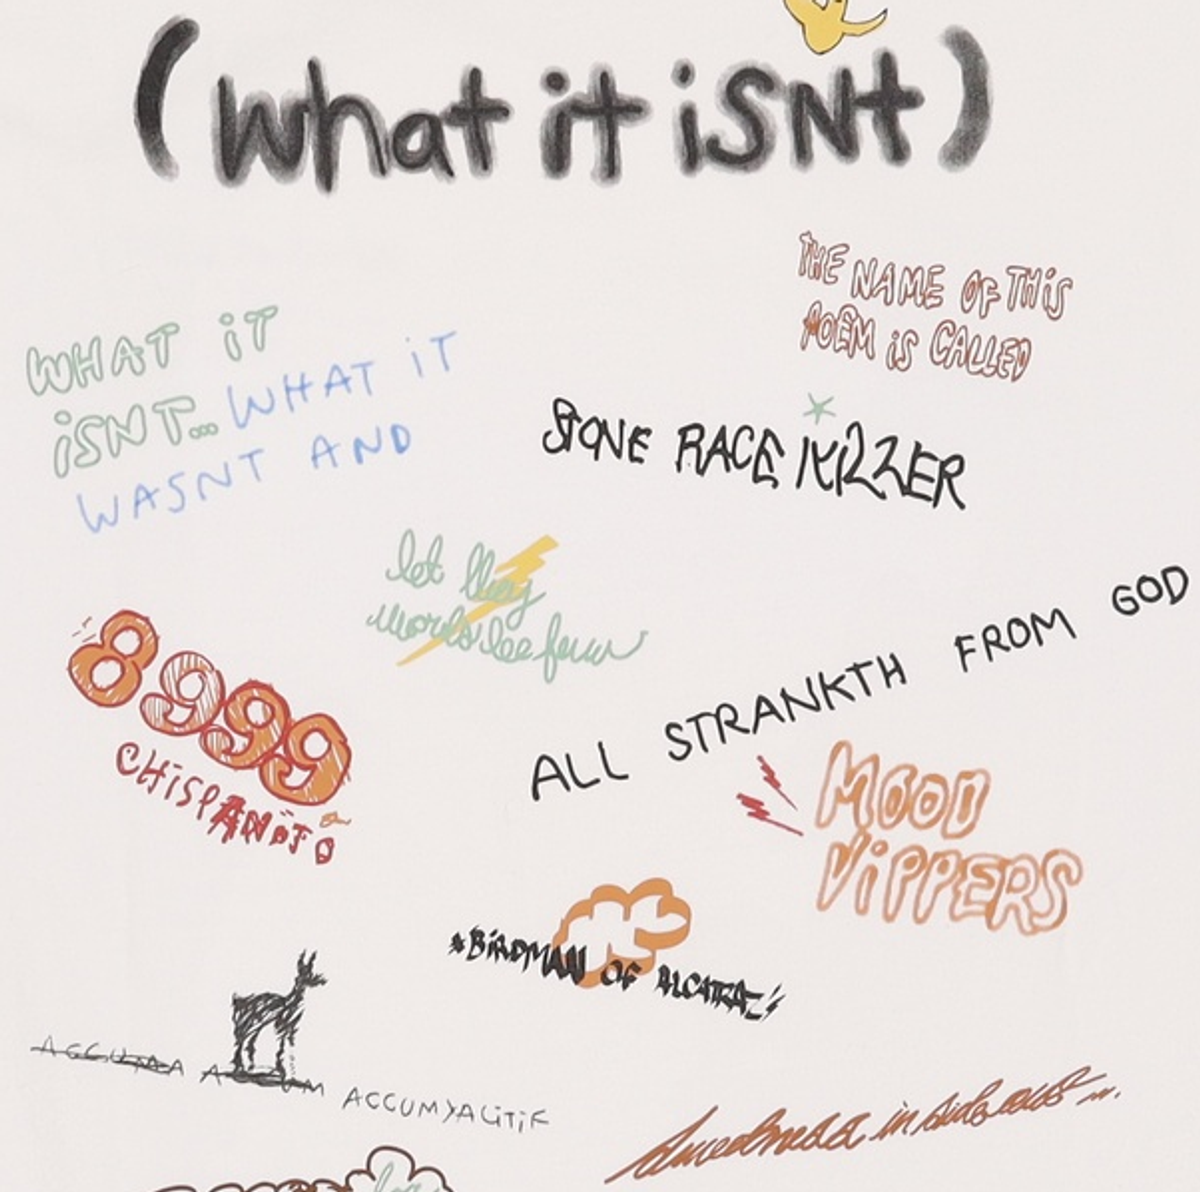 (What it isNt)
THE NAME OF THiS
POEM iS CALLED
WHAT iT
iSNT... WHAT iT
WASNT AND
STONE RACE KILLER
let they
words be few
ALL STRANKTH FROM GOD
8999
CHiSPANiTO
MOOD
ViPPERS
BiRDMAN OF ALCATRAZ
ACCUMA ACCUM ACCUMYALiTiF
in